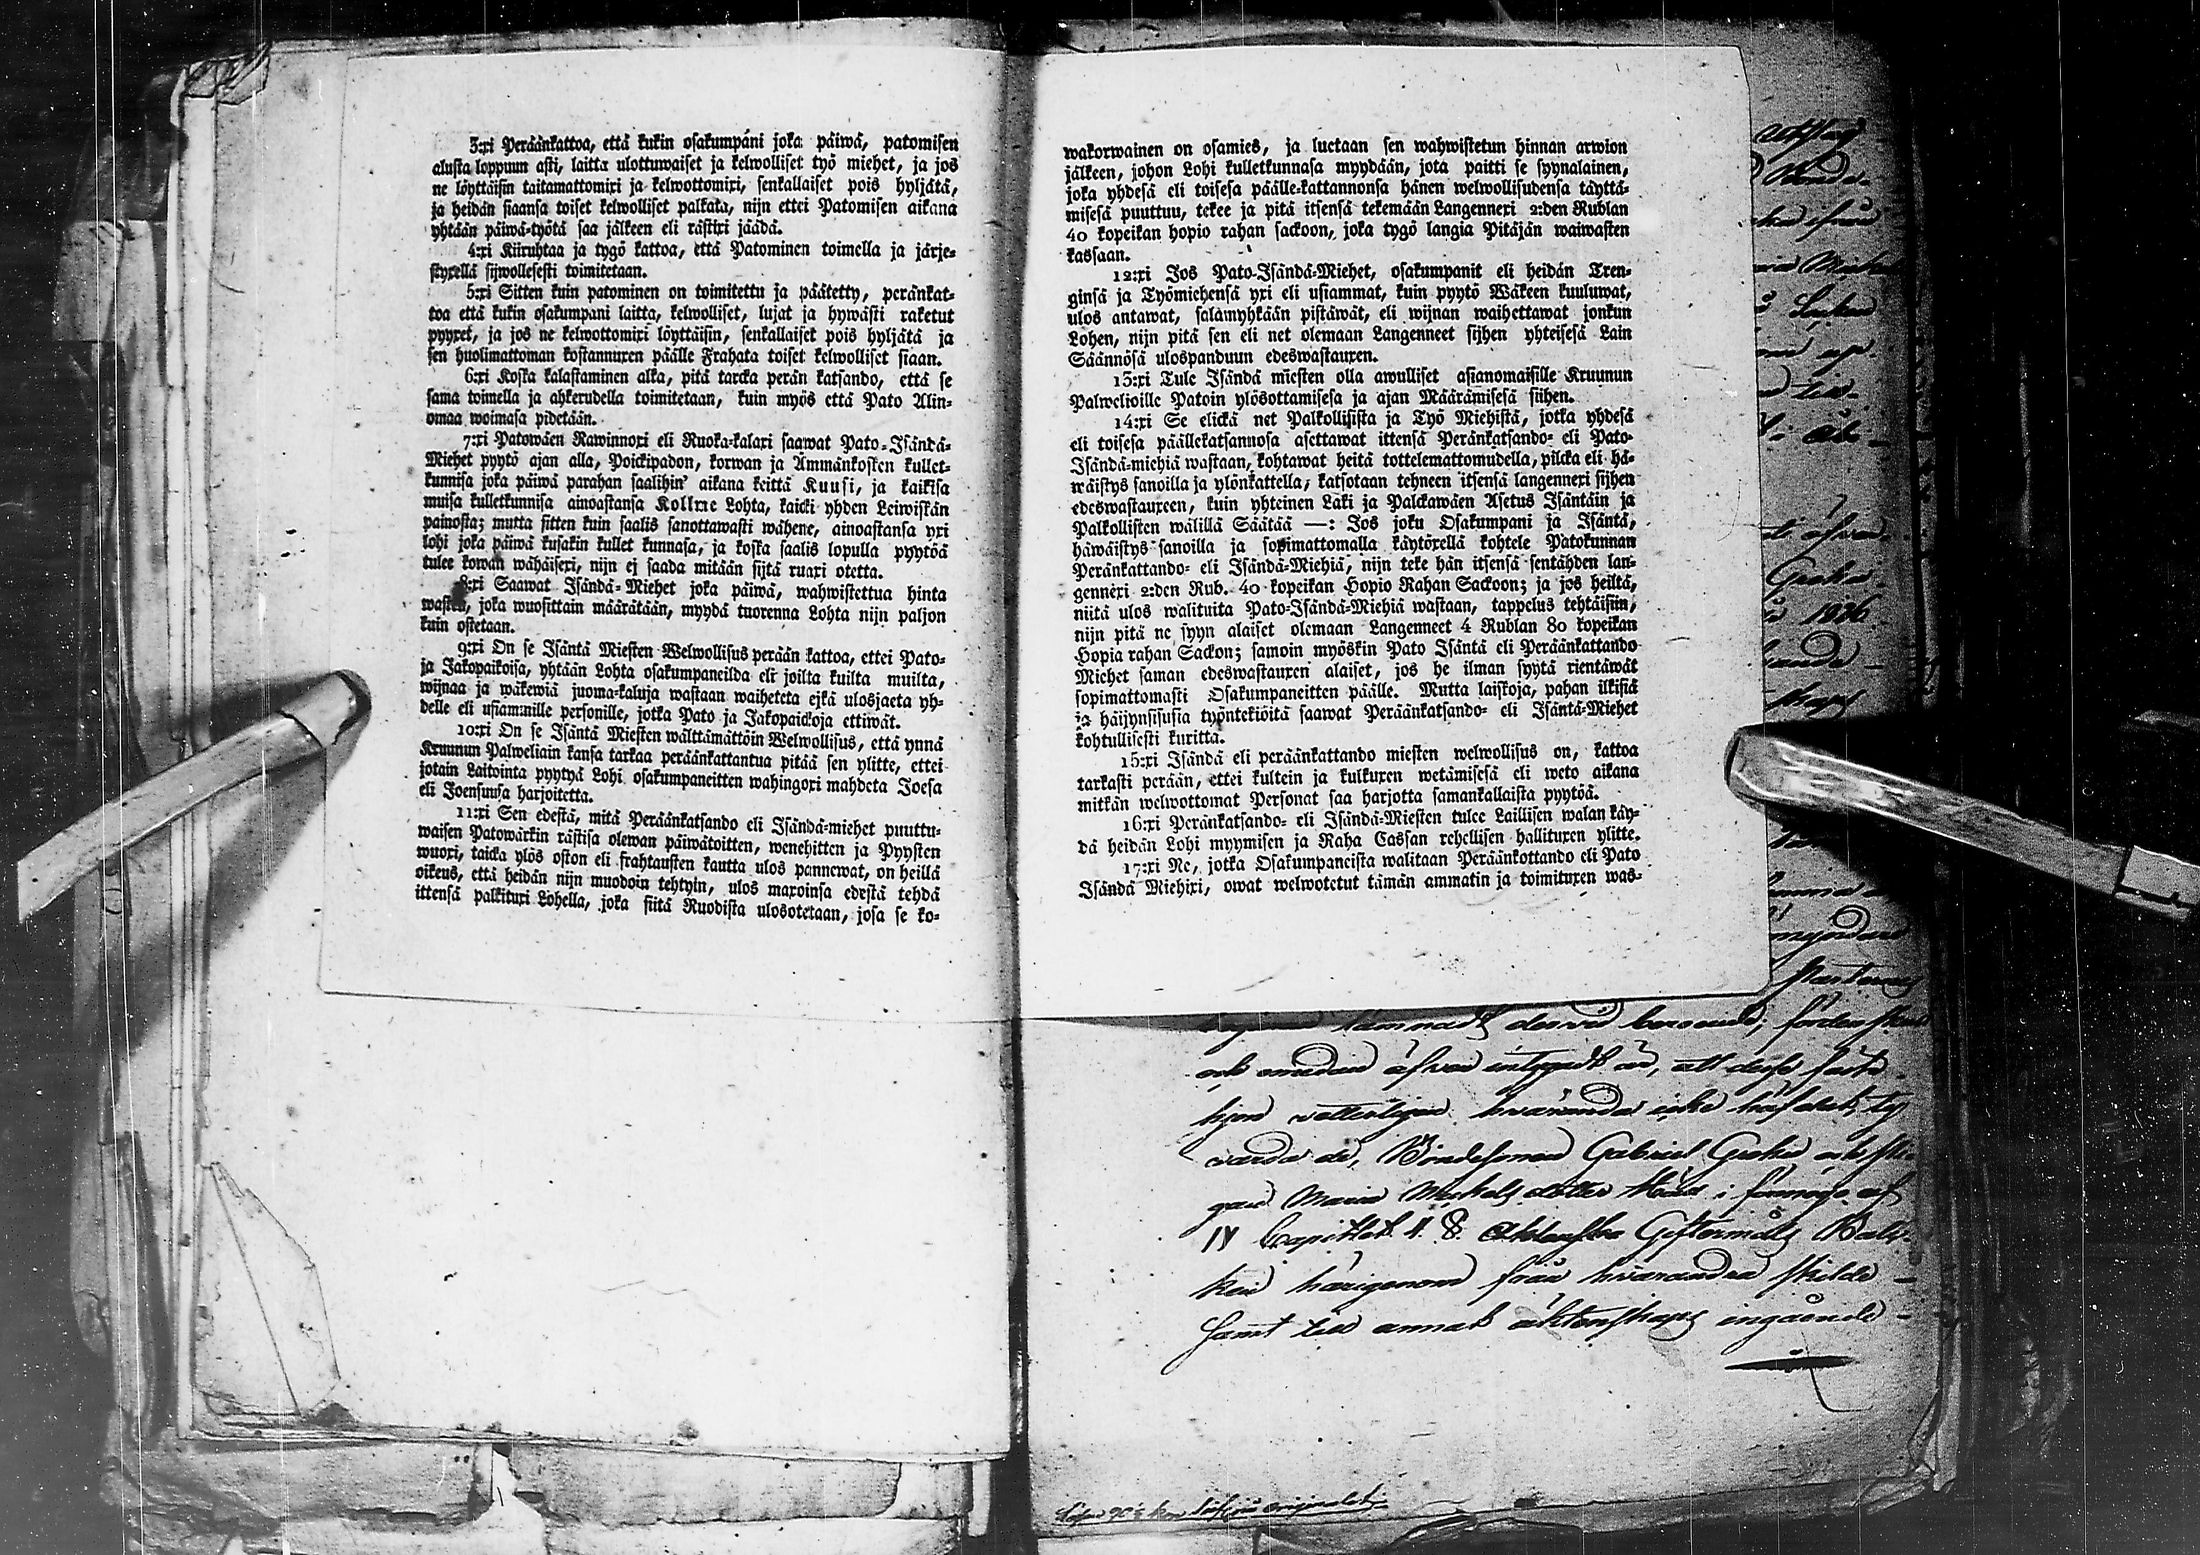 3:xi Peräänkattoa, että kukin osakumpáni joka päiwä, patomisen
alusta loppuun asti, laitta ulottuwaiset ja kelwolliset työ miehet, ja jos
ne löyttäisin taitamattomixi ja kelwottomixi, senkallaiset pois hyljätä,
ja heidän siaansa toiset kelwolliset palkata, nijn ettei Patomisen aikana
yhtään päiwä-työtä saa jälkeen eli rästixi jäädä.
4:xi Kiiruhtaa ja tygö kattoa, että Patominen toimella ja järje-
styxellä sijwollesesti toimitetaan.
5:xi Sitten kuin patominen on toimitettu ja päätetty, peränkat-
toa että kukin osakumpani laitta, kelwolliset, lujat ja hywästi raketut
pyyxet, ja jos ne kelwottomixi löyttäisin, senkallaiset pois hyljätä ja
sen huolimattoman kostannuxen päälle Frahata toiset kelwolliset siaan.
6:xi Koska kalastaminen alka, pitä tarcka perän katsando, että se
sama toimella ja ahkerudella toimitetaan, kuin myös että Pato Alin-
omaa woimasa pidetään.
7:xi Patowäen Rawinnoxi eli Ruoka-kalaxi saawat Pato-Isändä-
Miehet pyytö ajan alla, Poickipadon, korwan ja Ammänkosken kullet-
kunnisa joka päiwä parahan saalihin' aikana keittä Kuusi, ja kaikisa
muisa kulletkunnisa ainoastansa Kolme Lohta, kaicki yhden Leiwiskän
painosta; mutta sitten kuin saalis sanottawasti wähene, ainoastansa yxi
lohi joka päiwä kusakin kullet kunnasa, ja koska saalis lopulla pyytöä
tulee kowan wähäisexi, nijn ej saada mitään sijtä ruaxi otetta.
8:xi Saawat Isändä-Miehet joka päiwä, wahwistettua hinta
wasten, joka wuosittain määrätään, myydä tuorenna Lohta nijn paljon
kuin ostetaan.
9:xi On se Isäntä Miesten Welwollisus perään kattoa, ettei Pato-
ja Jakopaikoisa, yhtään Lohta osakumpaneilda eli joilta kuilta muilta,
wijnaa ja wäkewiä juoma-kaluja wastaan waiheteta ejkä ulosjaeta yh-
delle eli usiammille personille, jotka Pato ja Jakopaickoja ettiwät.
10:xi On se Isäntä Miesten wälttämättöin Welwollisus, että ynnä
Kruunun Palweliain kansa tarkaa peräänkattantua pitää sen ylitte, ettei
jotain Laitointa pyytyä Lohi osakumpaneitten wahingoxi mahdeta Joesa
eli Joensuusa harjoitetta.
11:xi Sen edestä, mitä Peräänkatsando eli Isändä-miehet puuttu-
waisen Patowärkin rästisa olewan päiwätoitten, wenehitten ja Pyysten
wuoxi, taicka ylös oston eli frahtausten kautta ulos pannewat, on heillä
oikeus, että heidän nijn muodoin tehtyin, ulos maxoinsa edestä tehdä
ittensä palkituxi Lohella, joka siitä Ruodista ulosotetaan, josa se ko-
wakorwainen on osamies, ja luetaan sen wahwistetun hinnan arwion
jälkeen, johon Lohi kulletkunnasa myydään, jota paitti se syynalainen,
joka yhdesä eli toisesa päälle-kattannonsa hänen welwollisudensa täyttä-
misesä puuttuu, tekee ja pitä itsensä tekemään Langennexi 2:den Rublan
40 kopeikan hopio rahan sackoon, joka tygö langia Pitäjän waiwasten
kassaan.
12:xi Jos Pato-Isändä-Miehet, osakumpanit eli heidän Tren-
ginsä ja Työmiehensä yxi eli usiammat, kuin pyytö Wäkeen kuuluwat,
ulos antawat, salamyhkään pistäwät, eli wijnan waihettawat jonkun
Lohen, nijn pitä sen eli net olemaan Langenneet sijhen yhteisesä Lain
Säännösä ulospanduun edeswastauxen.
13:xi Tule Isändä miesten olla awulliset asianomaisille Kruunun
Palwelioille Patoin ylösottamisesa ja ajan Määrämisesä siihen.
14:xi Se elickä net Palkollisista ja Työ Miehistä, jotka yhdesä
eli toisesa päällekatsannosa asettawat ittensä Peränkatsando- eli Pato-
Isändä-miehiä wastaan, kohtawat heitä tottelemattomudella, pilcka eli hä-
wäistys sanoilla ja ylönkattella, katsotaan tehneen itsensä langennexi sijhen
edeswastauxeen, kuin yhteinen Laki ja Palckawäen Asetus Isäntäin ja
Palkollisten wälillä Säätää —: Jos joku Osakumpani ja Isäntä,
häwäistys sanoilla ja sopimattomalla käytöxellä kohtele Patokunnan
Peränkattando- eli Isändä-Miehiä, nijn teke hän itsensä sentähden lan-
gennexi 2:den Rub. 40 kopeikan Hopio Rahan Sackoon; ja jos heiltä,
niitä ulos walituita Pato-Isändä-Miehiä wastaan, tappelus tehtäisiin,
nijn pitä ne syyn alaiset olemaan Langenneet 4 Rublan 80 kopeikan
Hopia rahan Sackon; samoin myöskin Pato Isäntä eli Peräänkattando
Miehet saman edeswastauxen alaiset, jos he ilman syytä rientäwät
sopimattomasti Osakumpaneitten päälle. Mutta laiskoja, pahan ilkisiä
ja häijynsisusia työntekiöitä saawat Peräänkatsando- eli Isäntä-Miehet
kohtullisesti kuritta.
15:xi Isändä eli peräänkattando miesten welwollisus on, kattoa
tarkasti perään, ettei kultein ja kulkuxen wetämisesä eli weto aikana
mitkän welwottomat Personat saa harjotta samankallaista pyytöä.
16:xi Peränkatsando- eli Isändä-Miesten tulee Laillisen walan käy-
dä heidän Lohi myymisen ja Raha Cassan rehellisen hallituxen ylitte.
17:xi Ne, jotka Osakumpaneista walitaan Peräänkottando eli Pato
Isändä Miehixi, owat welwotetut tämän ammatin ja toimituxen was-
1836
derwid beroende;
och emedan äfwen intygadt är, att desse fäste-
hjon wetterligen hwarandra icke häfdat, ty
warda de, Bondesonen Gabriel
Maria Michelsdotter i förmågo af
IV Capitlet 1. §. Giftermåls Bal-
ken härigenom från hwarandra skilde
samt till annat äktenskaps ingående
originalet